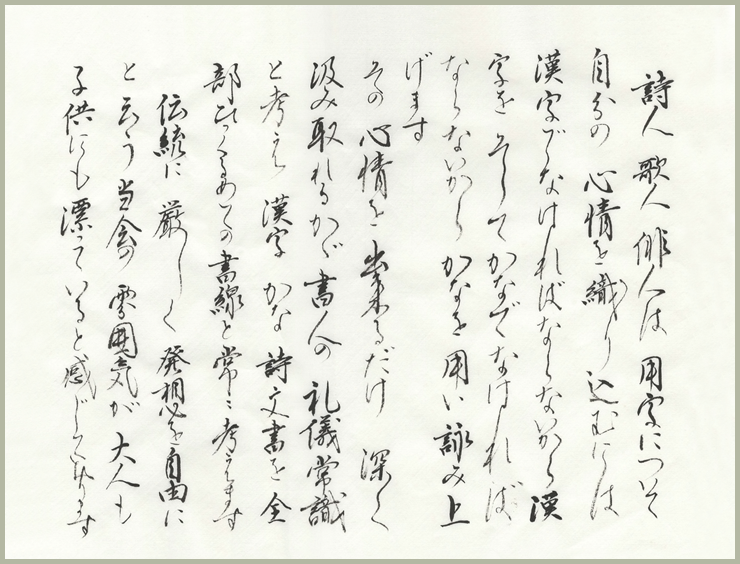 詩人 歌人 俳人は 用字について
自分の 心情を織り込むには
漢字でなければならないから 漢
字を そしてかなでなければ
ならないから かなを 用い 詠み上
げます
その 心情を 出来るだけ 深く
汲み取れるかが 書人の 礼儀常識
と考え 漢字 かな 詩文書を 全
部ひっくるめての 書線と 常に 考えます
伝統に 厳しく 発想を自由に
と云う 当会の 雰囲気が 大人も
子供にも 漂っていると 感じております